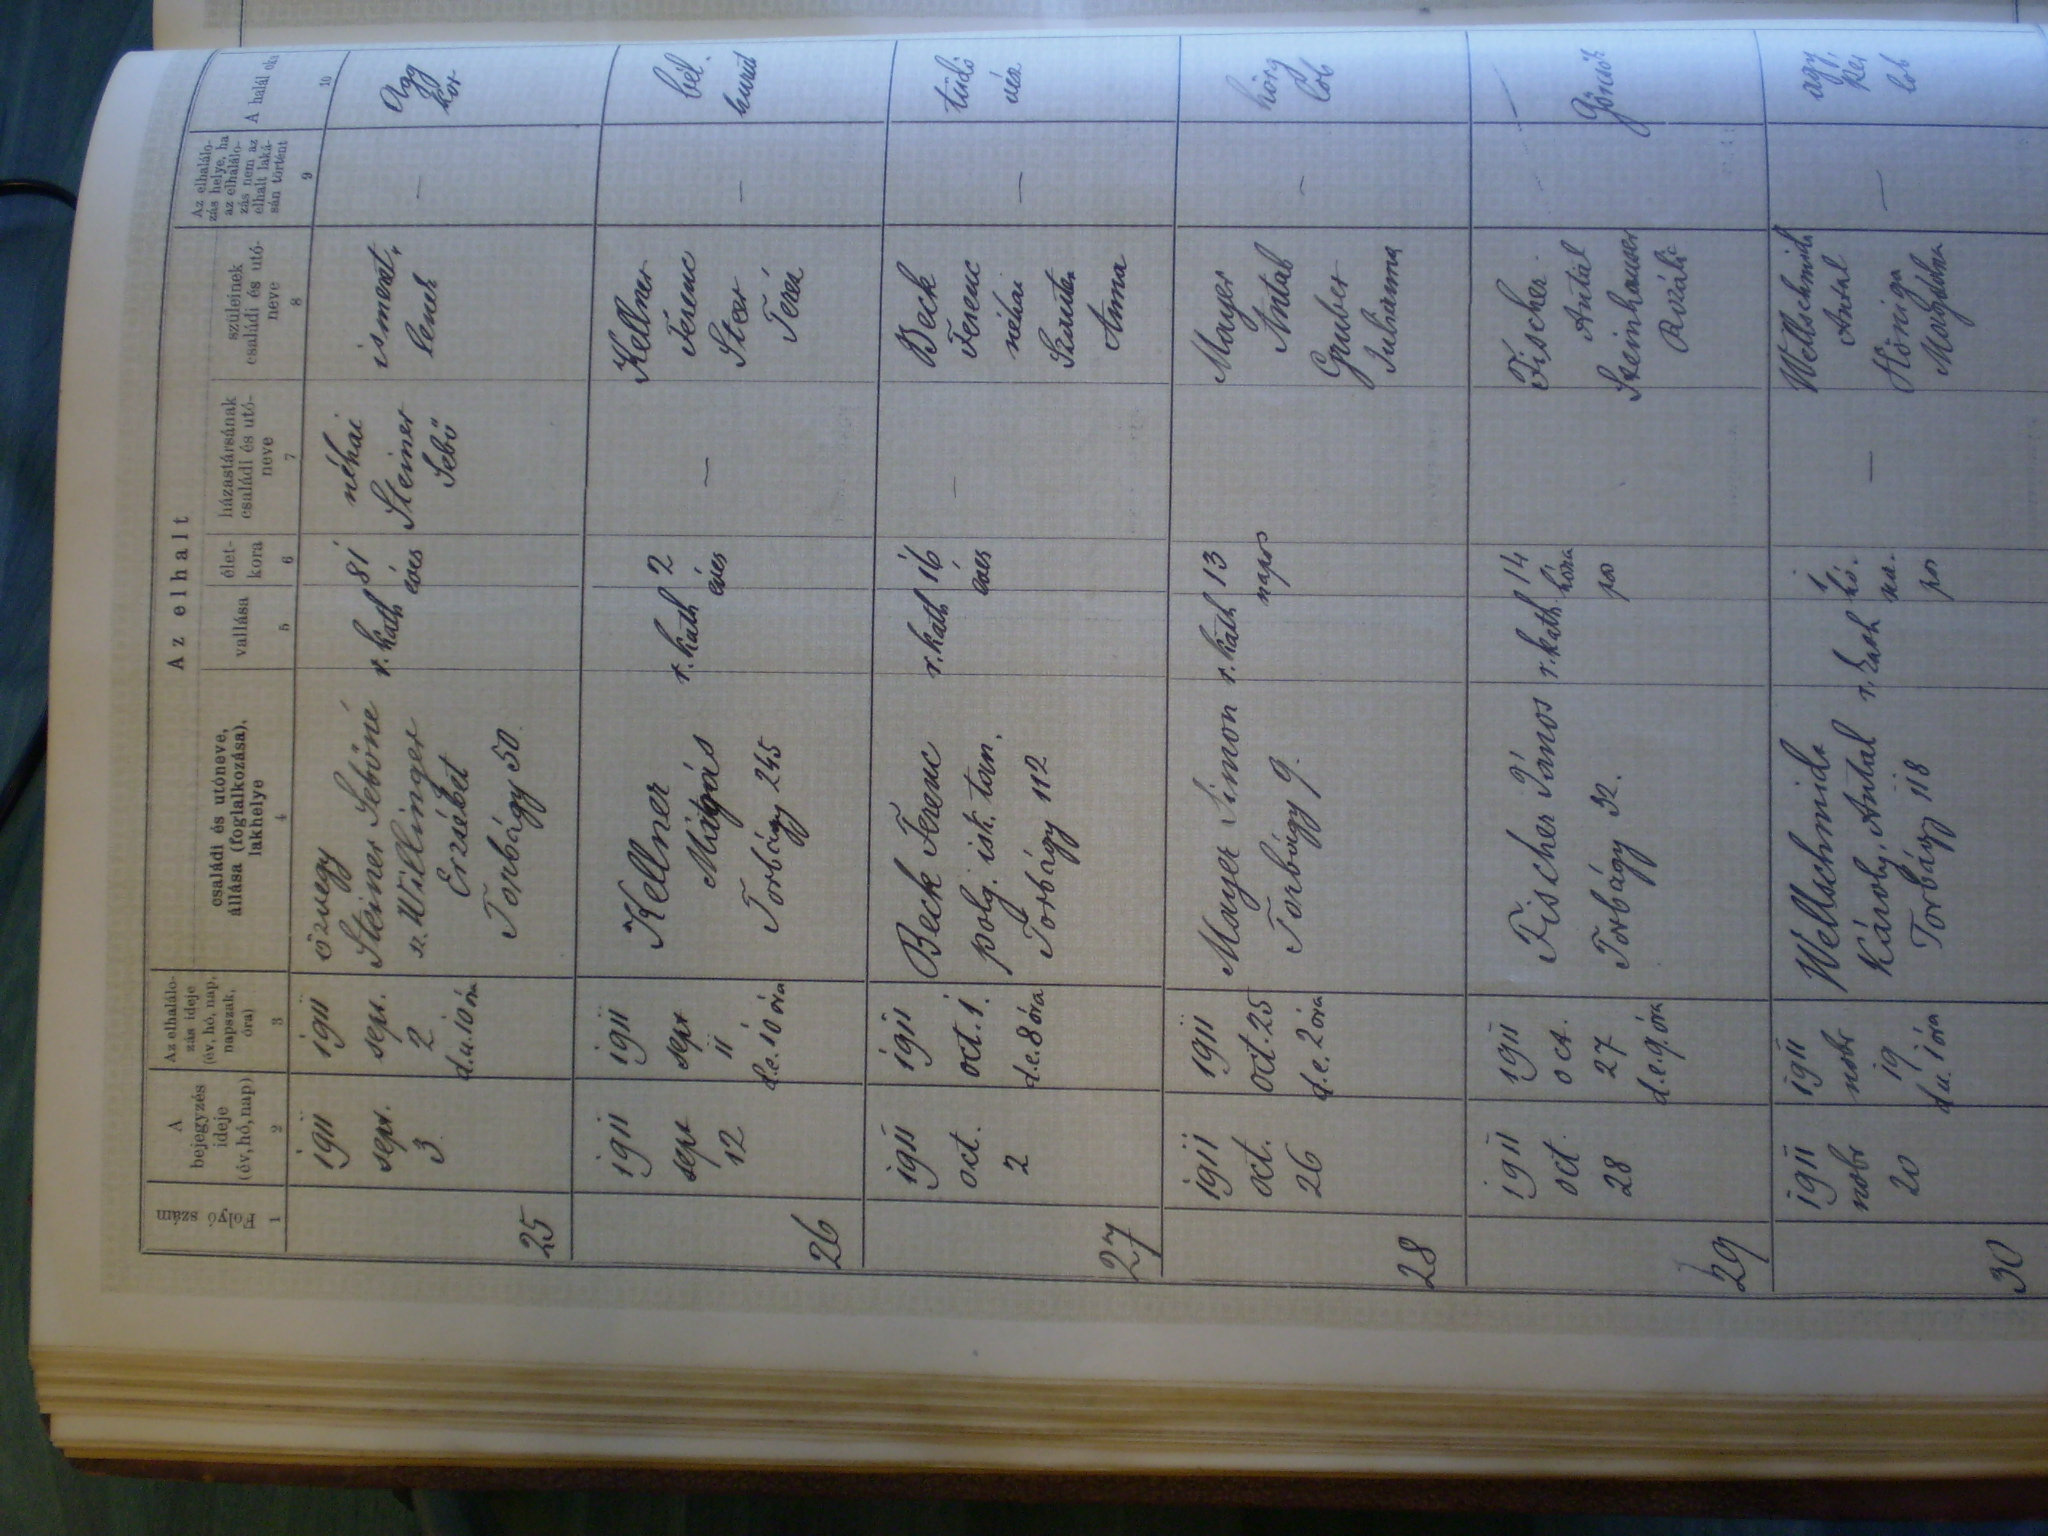 Az elhalt
Folyó
szám
1
A
bejegyzés
ideje
(év, hó, nap)
2
Az elhalálo-
zás ideje
(év, hó, nap,
napszak,
óra)
3
családi és utóneve,
állása (foglalkozása),
lakhelye
4
vallása
5
élet-
kora
6
házastársának
családi és utó-
neve
7
szüleinek
családi és utó-
neve
8
Az elhalálo-
zás helye, ha
az elhalálo-
zás nem az
elhalt laká-
sán történt
9
A halál oka
10
25
1911
sept.
3
1911
sept.
2
d.u. 10 óra
özvegy
Steiner Sebőné
sz. Willinger
Erzsébet
Torbágy 50.
r. kath
81
éves
néhai
Steiner
Sebő
ismeret-
lenek
—
Agg
kor
26
1911
sept
12
1911
sept
11
d.e. 10 óra
Kellner
Mátyás
Torbágy 245
r. kath
2
éves
—
Kellner
Ferenc
Ster
Teréz
—
bél-
hurut
27
1911
oct.
2
1911
oct. 1.
d.e. 8 óra
Beck Ferenc
polg. isk. tan.
Torbágy 112
r. kath
16
éves
—
Beck
Ferenc
néhai
Anna
—
tüdő
vész
28
1911
oct.
26
1911
oct. 25
d.e. 2 óra
Mayer Simon
Torbágy 9.
r. kath
13
napos
Mayer
Antal
Gruber
Julianna
—
hörg
lob
29
1911
oct
28
1911
oct.
27
d.e. 9. óra
Fischer János
Torbágy 32.
r. kath.
14
hóna
pos
Fischer
Antal
Steinhauser
Rozália
-
Görcsök
30
1911
nobr
20
1911
nobr
19
d.u. 1 óra
Wellschmidt
Károly, Antal
Torbágy 118
r. kath
1
hó-
na-
pos
—
Wellschmidt
Antal
Höniga
Magdolna
—
agy,
kér
lob